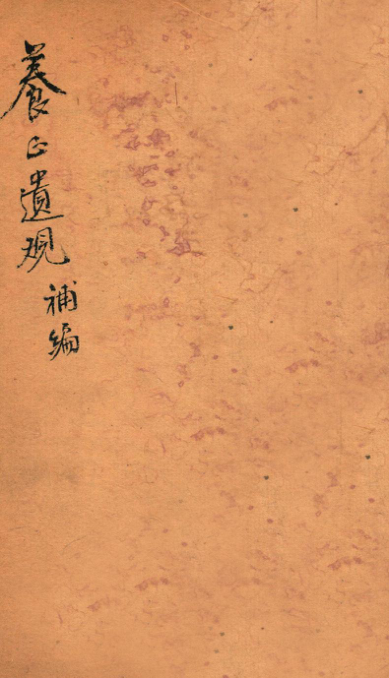 養正遺規
補編